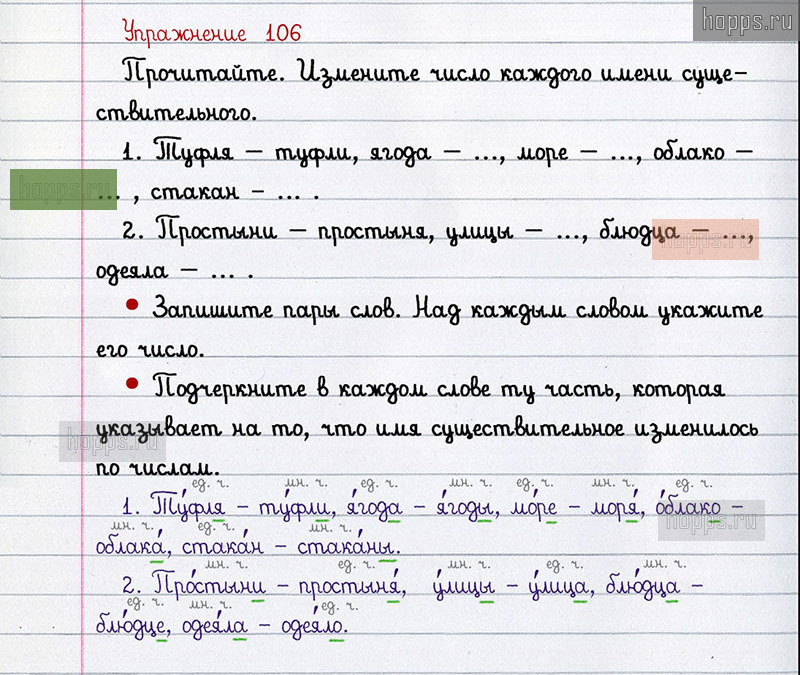 hopps.ru
Упражнение 106
Прочитайте. Измените число каждого имени суще-
ствительного.
1. Туфля – туфли, ягода – ..., море – ..., облако –
hopps.ru
... , стакан – ... .
2. Простыни – простыня, улицы – ..., блюдца – ...,
hopps.ru
одеяла – ... .
• Запишите пары слов. Над каждым словом укажите
его число.
• Подчеркните в каждом слове ту часть, которая
указывает на то, что имя существительное изменилось
hopps.ru
по числам.
ед. ч. мн. ч. ед. ч. мн. ч. ед. ч. мн. ч. ед. ч.
1. Ту́фля – ту́фли, я́года – я́годы, мо́ре – моря́, о́блако –
hopps.ru
мн. ч. ед. ч. мн. ч.
облака́, стака́н – стака́ны.
мн. ч. ед. ч. мн. ч. ед. ч. мн. ч.
2. Про́стыни – простыня́, у́лицы – у́лица, блю́дца –
ед. ч. мн. ч. ед. ч.
блю́дце, одея́ла – одея́ло.